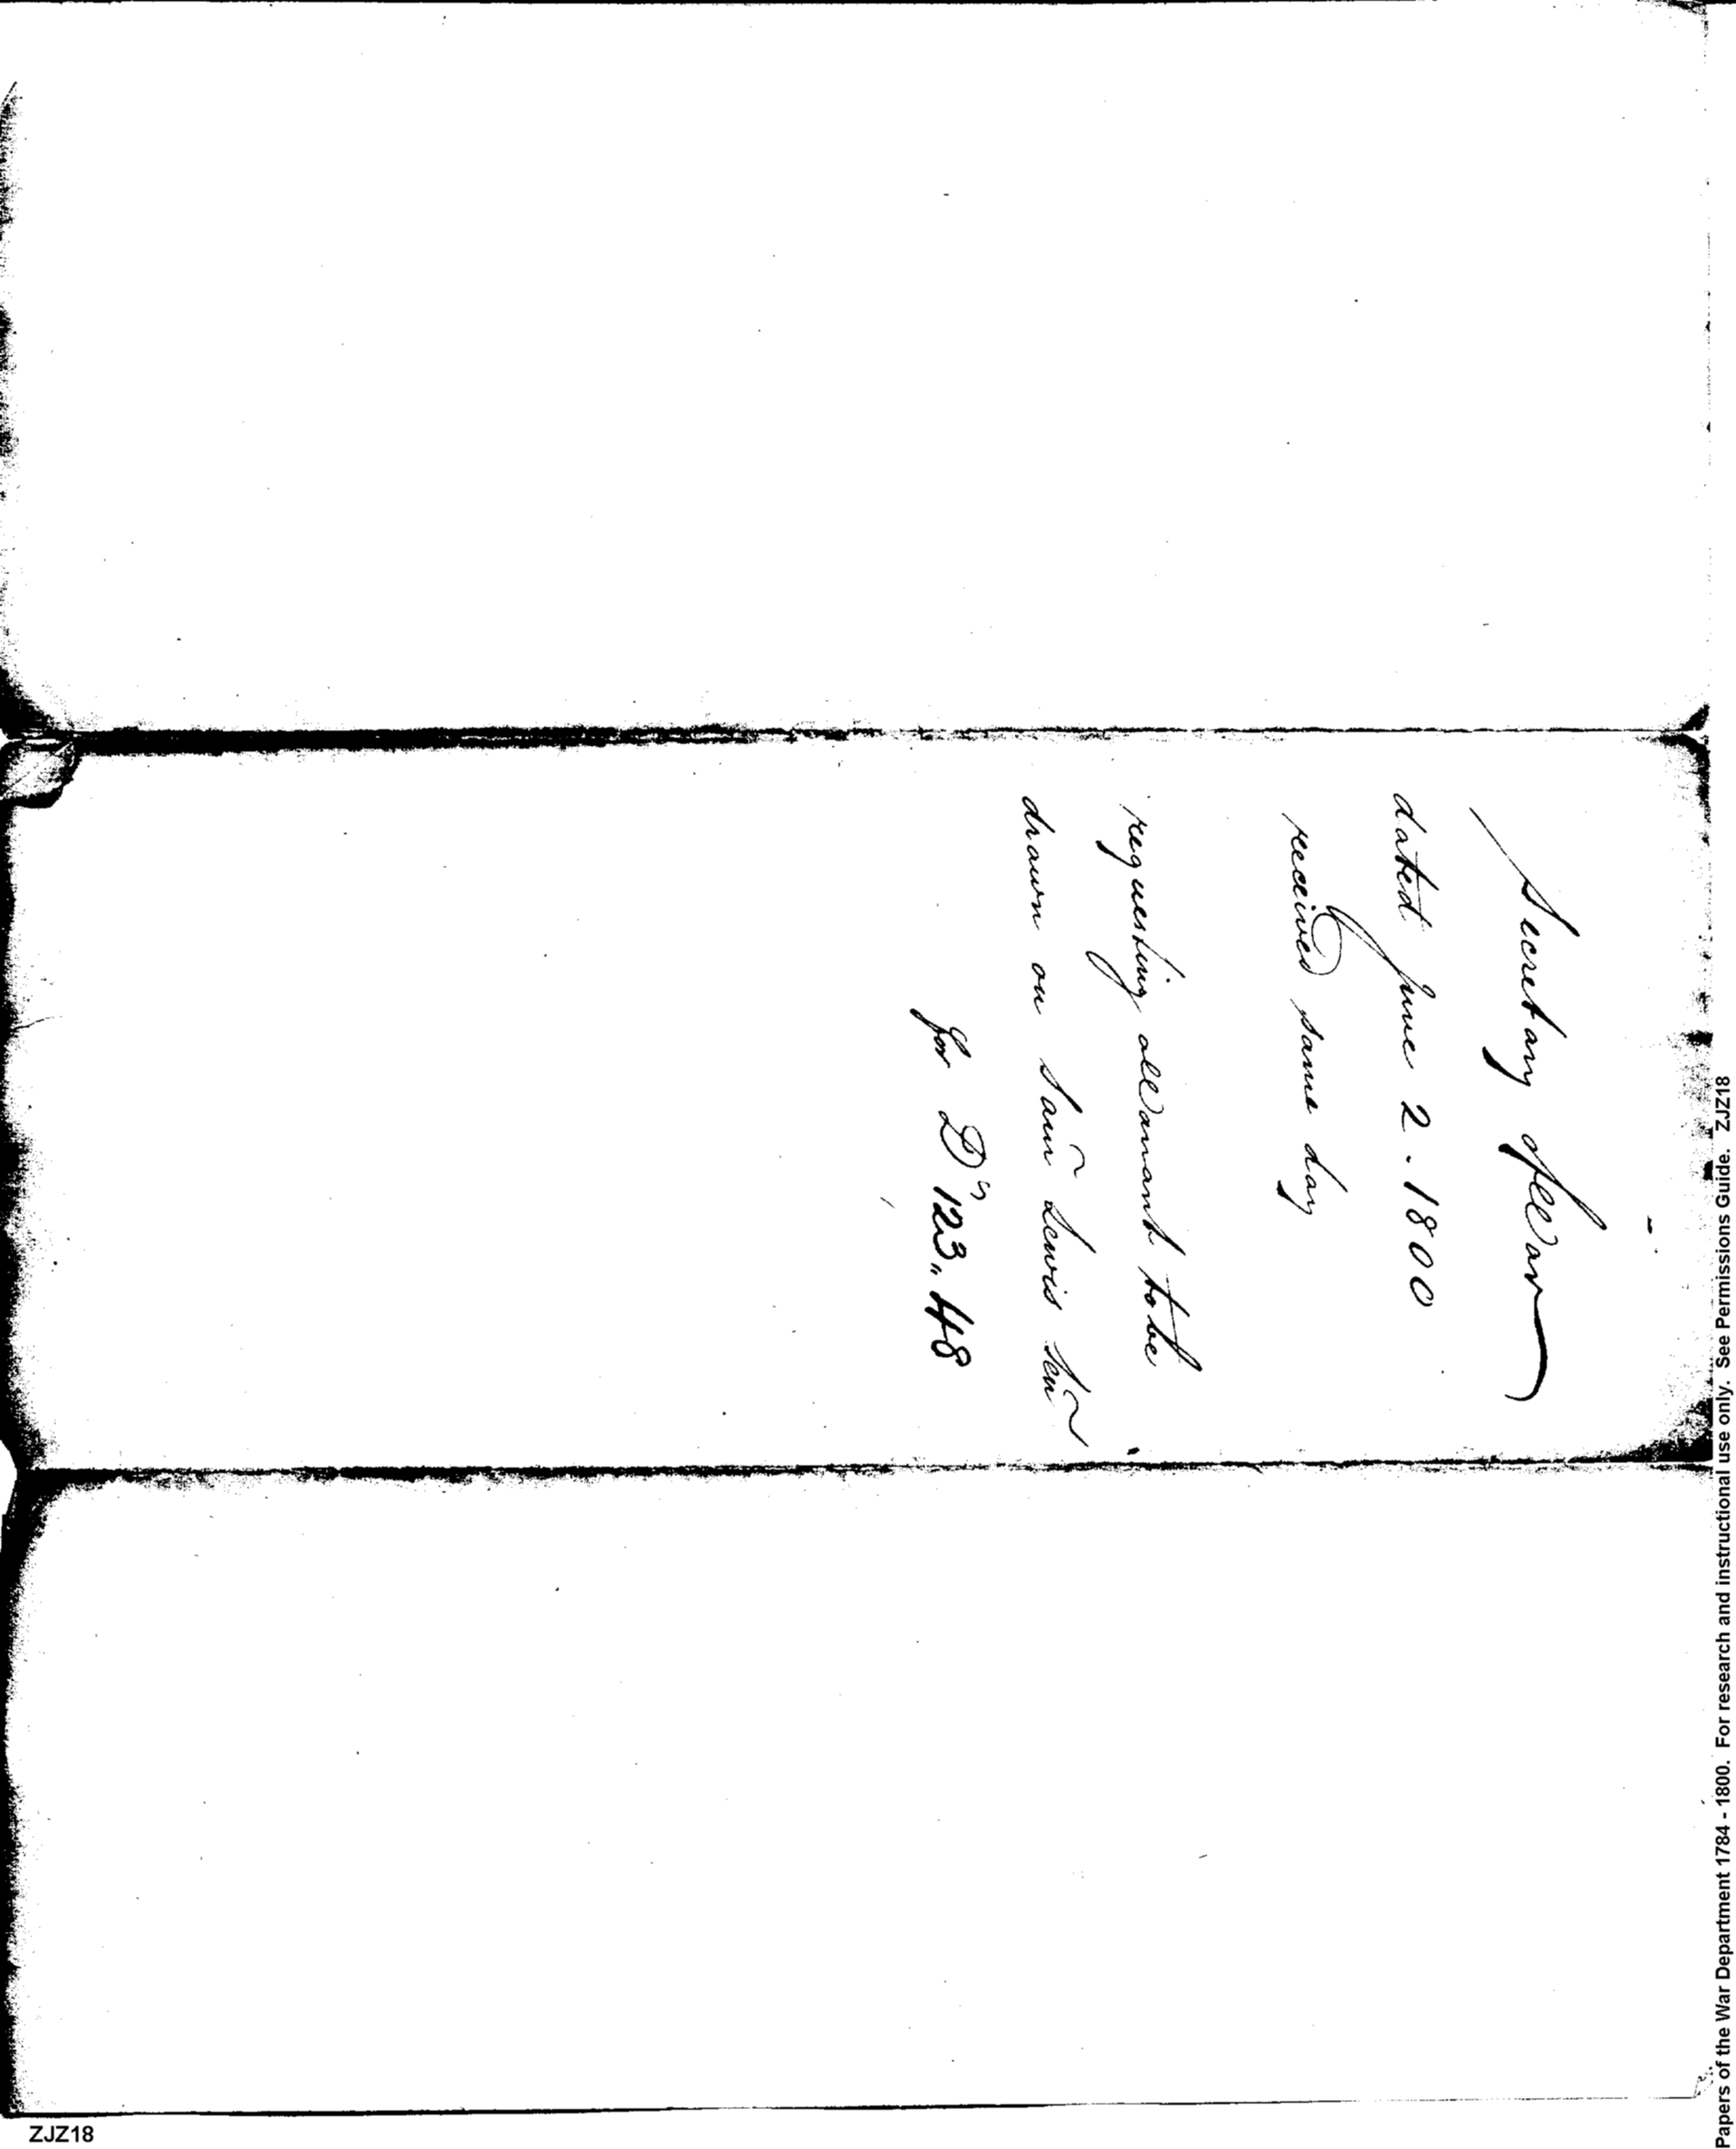 Secretary of War
dated June 2. 1800
received same day
requesting a Warrant to be
drawn on Sam Lewis Sen
for Ds 123.. 48
Papers of the War Department 1784 - 1800. For research and instructional use only. See Permissions Guide. ZJZ18
ZJZ18